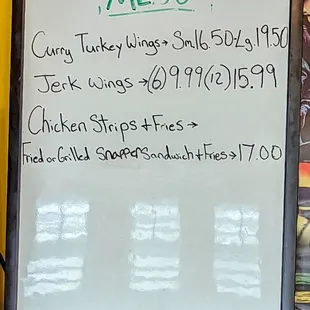 Curry Turkey Wings→ Sm.16.50-Lg.19.50
Jerk Wings →(6)9.99(12)15.99
Chicken Strips + Fries →
Fried or Grilled Snapper Sandwich + Fries→17.00